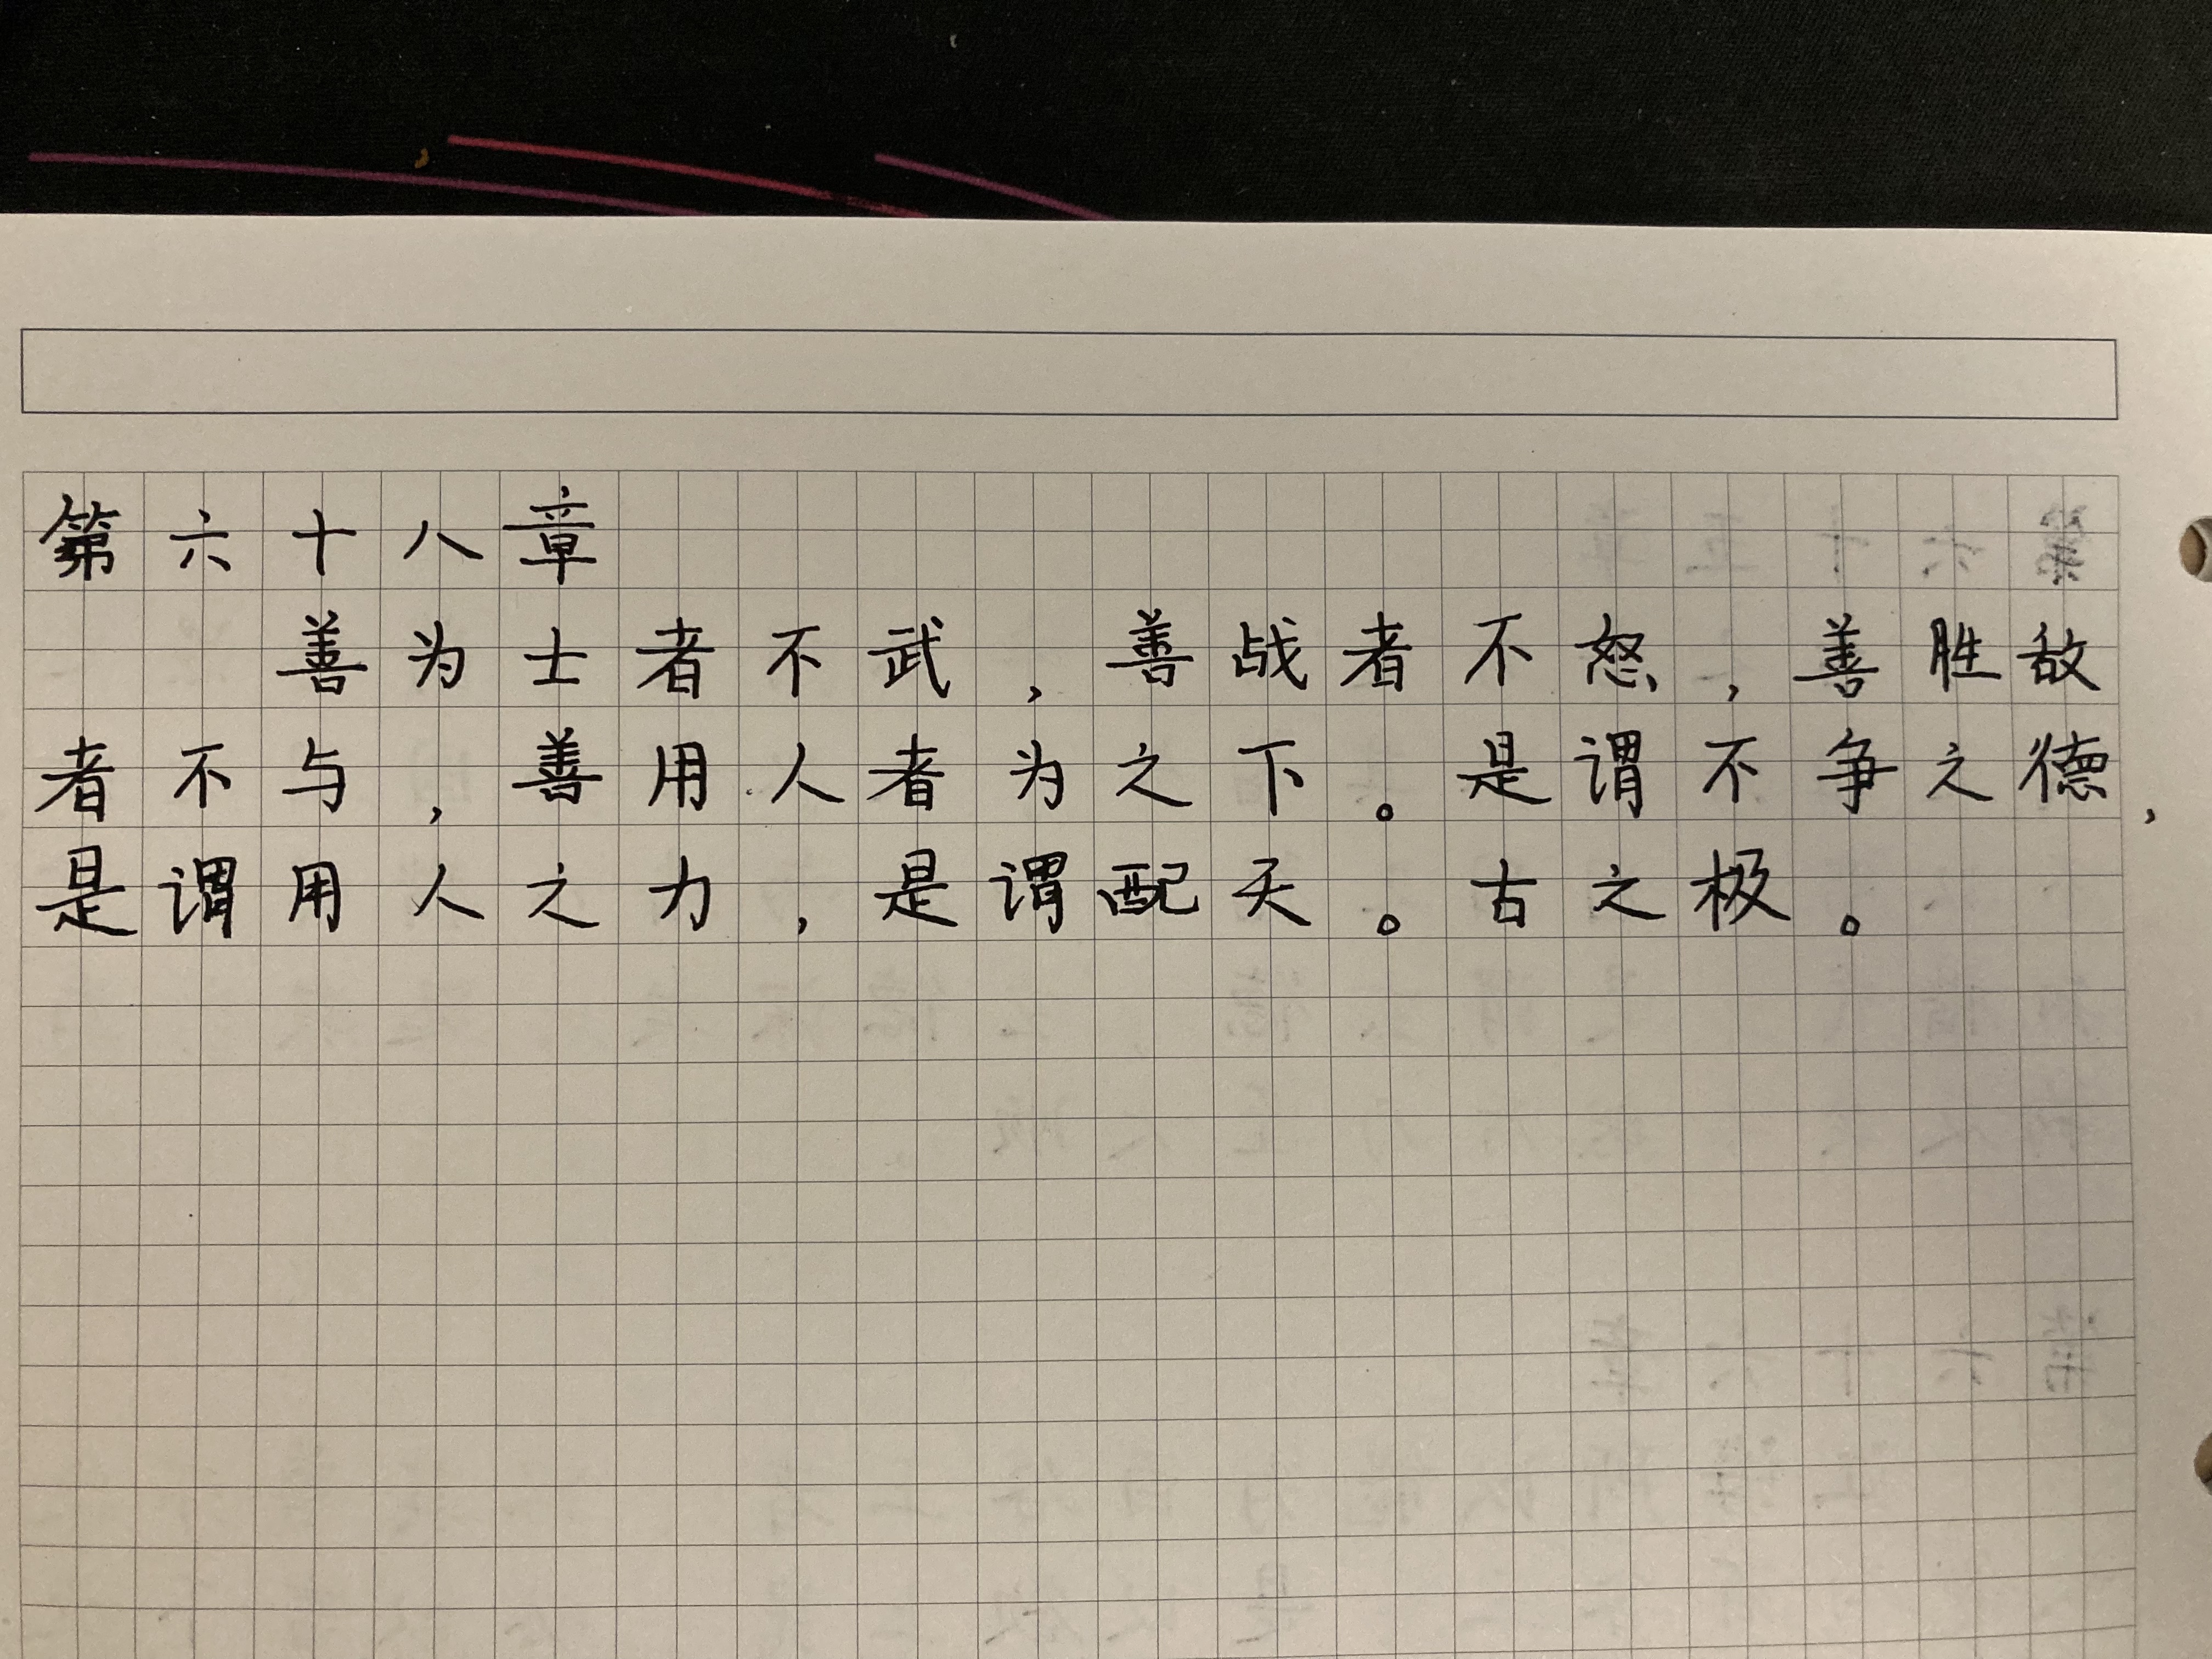 第六十八章
善为士者不武，善战者不怒，善胜敌
者不与，善用人者为之下。是谓不争之德，
是谓用人之力，是谓配天。古之极。